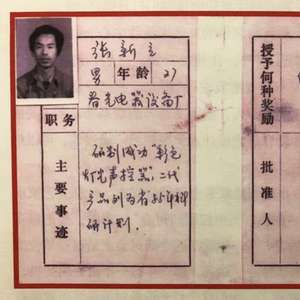 张新立
男 年龄 27
春光电器设备厂
职务
主要事迹
研制成功"彩色
灯光声控器"二代
产品列为省85年科
研计划.
授予何种奖励
批准人